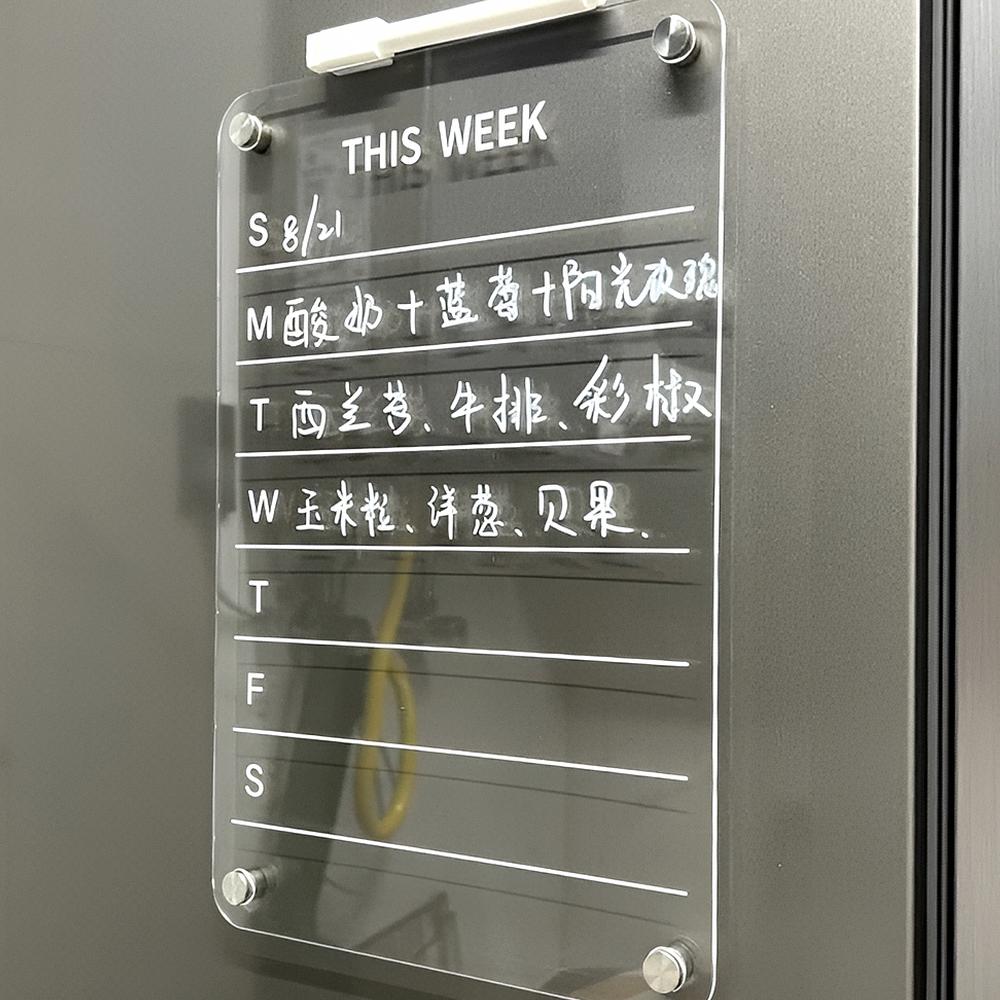 THIS WEEK
S 8/21
M 酸奶+蓝莓+阳光玫瑰
T 西兰苔、牛排、彩椒
W 玉米粒、洋葱、贝果.
T
F
S